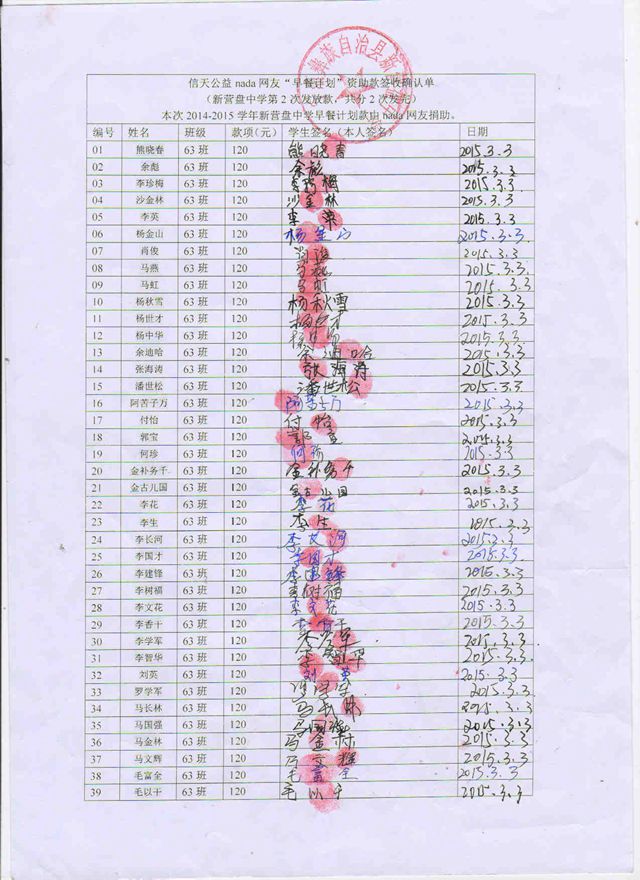 彝族自治县新
信天公益nada网友“早餐计划”资助款签收确认单
（新营盘中学第2次发放款，共分2次发完）
本次2014-2015学年新营盘中学早餐计划款由nada网友捐助。
编号 姓名 班级 款项（元） 学生签名（本人签名） 日期
01 熊晓春 63班 120 熊晓春 2015.3.3
02 余彪 63班 120 余彪 2015.3.3
03 李珍梅 63班 120 李珍梅 2015.3.3
04 沙金林 63班 120 沙金林 2015.3.3
05 李英 63班 120 李英 2015.3.3
06 杨金山 63班 120 杨金山 2015.3.3
07 肖俊 63班 120 肖俊 2015.3.3
08 马燕 63班 120 马燕 2015.3.3
09 马虹 63班 120 马虹 2015.3.3
10 杨秋雪 63班 120 杨秋雪 2015.3.3
11 杨世才 63班 120 杨世才 2015.3.3
12 杨中华 63班 120 2015.3.3
13 余迪哈 63班 120 余迪哈 2015.3.3
14 张海涛 63班 120 张海涛 2015.3.3
15 潘世松 63班 120 潘世松 2015.3.3
16 阿苦子万 63班 120 阿苦子万 2015.3.3
17 付怡 63班 120 付怡 2015.3.3
18 郭宝 63班 120 郭宝 2015.3.3
19 何珍 63班 120 何珍 2015.3.3
20 金补务千 63班 120 金补务千 2015.3.3
21 金古儿国 63班 120 金古儿国 2015.3.3
22 李花 63班 120 李花 2015.3.3
23 李生 63班 120 李生 2015.3.3
24 李长河 63班 120 李长河 2015.3.3
25 李国才 63班 120 李国才 2015.3.3
26 李建锋 63班 120 李建锋 2015.3.3
27 李树福 63班 120 李树福 2015.3.3
28 李文花 63班 120 李文花 2015.3.3
29 李香干 63班 120 李香干 2015.3.3
30 李学军 63班 120 李学军 2015.3.3
31 李智华 63班 120 李智华 2015.3.3
32 刘英 63班 120 刘英 2015.3.3
33 罗学军 63班 120 2015.3.3
34 马长林 63班 120 马长林 2015.3.3
35 马国强 63班 120 马国强 2015.3.3
36 马金林 63班 120 马金林 2015.3.3
37 马文辉 63班 120 马文辉 2015.3.3
38 毛富全 63班 120 毛富全 2015.3.3
39 毛以干 63班 120 毛以干 2015.3.3